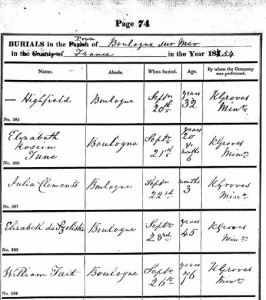 Page 74
BURIALS in the Town Parish of Boulogne sur Mer
in the County of France in the Year 1854
Name. Abode. When buried. Age. By whom the Ceremony was performed.
— Highfield Boulogne Septr 20th years 32 K Groves Minr
No. 585
Elizabeth Boulogne Septr 21st years 20 & months 6 K Groves Minr
June
No. 586
Julia Clements Boulogne Septr 22nd months 3 K Groves Minr
No. 587
Elizabeth Boulogne Septr 23rd years 45 K Groves Minr
No. 588
William Tait Boulogne Septr 26th K Groves Minr
No. 589